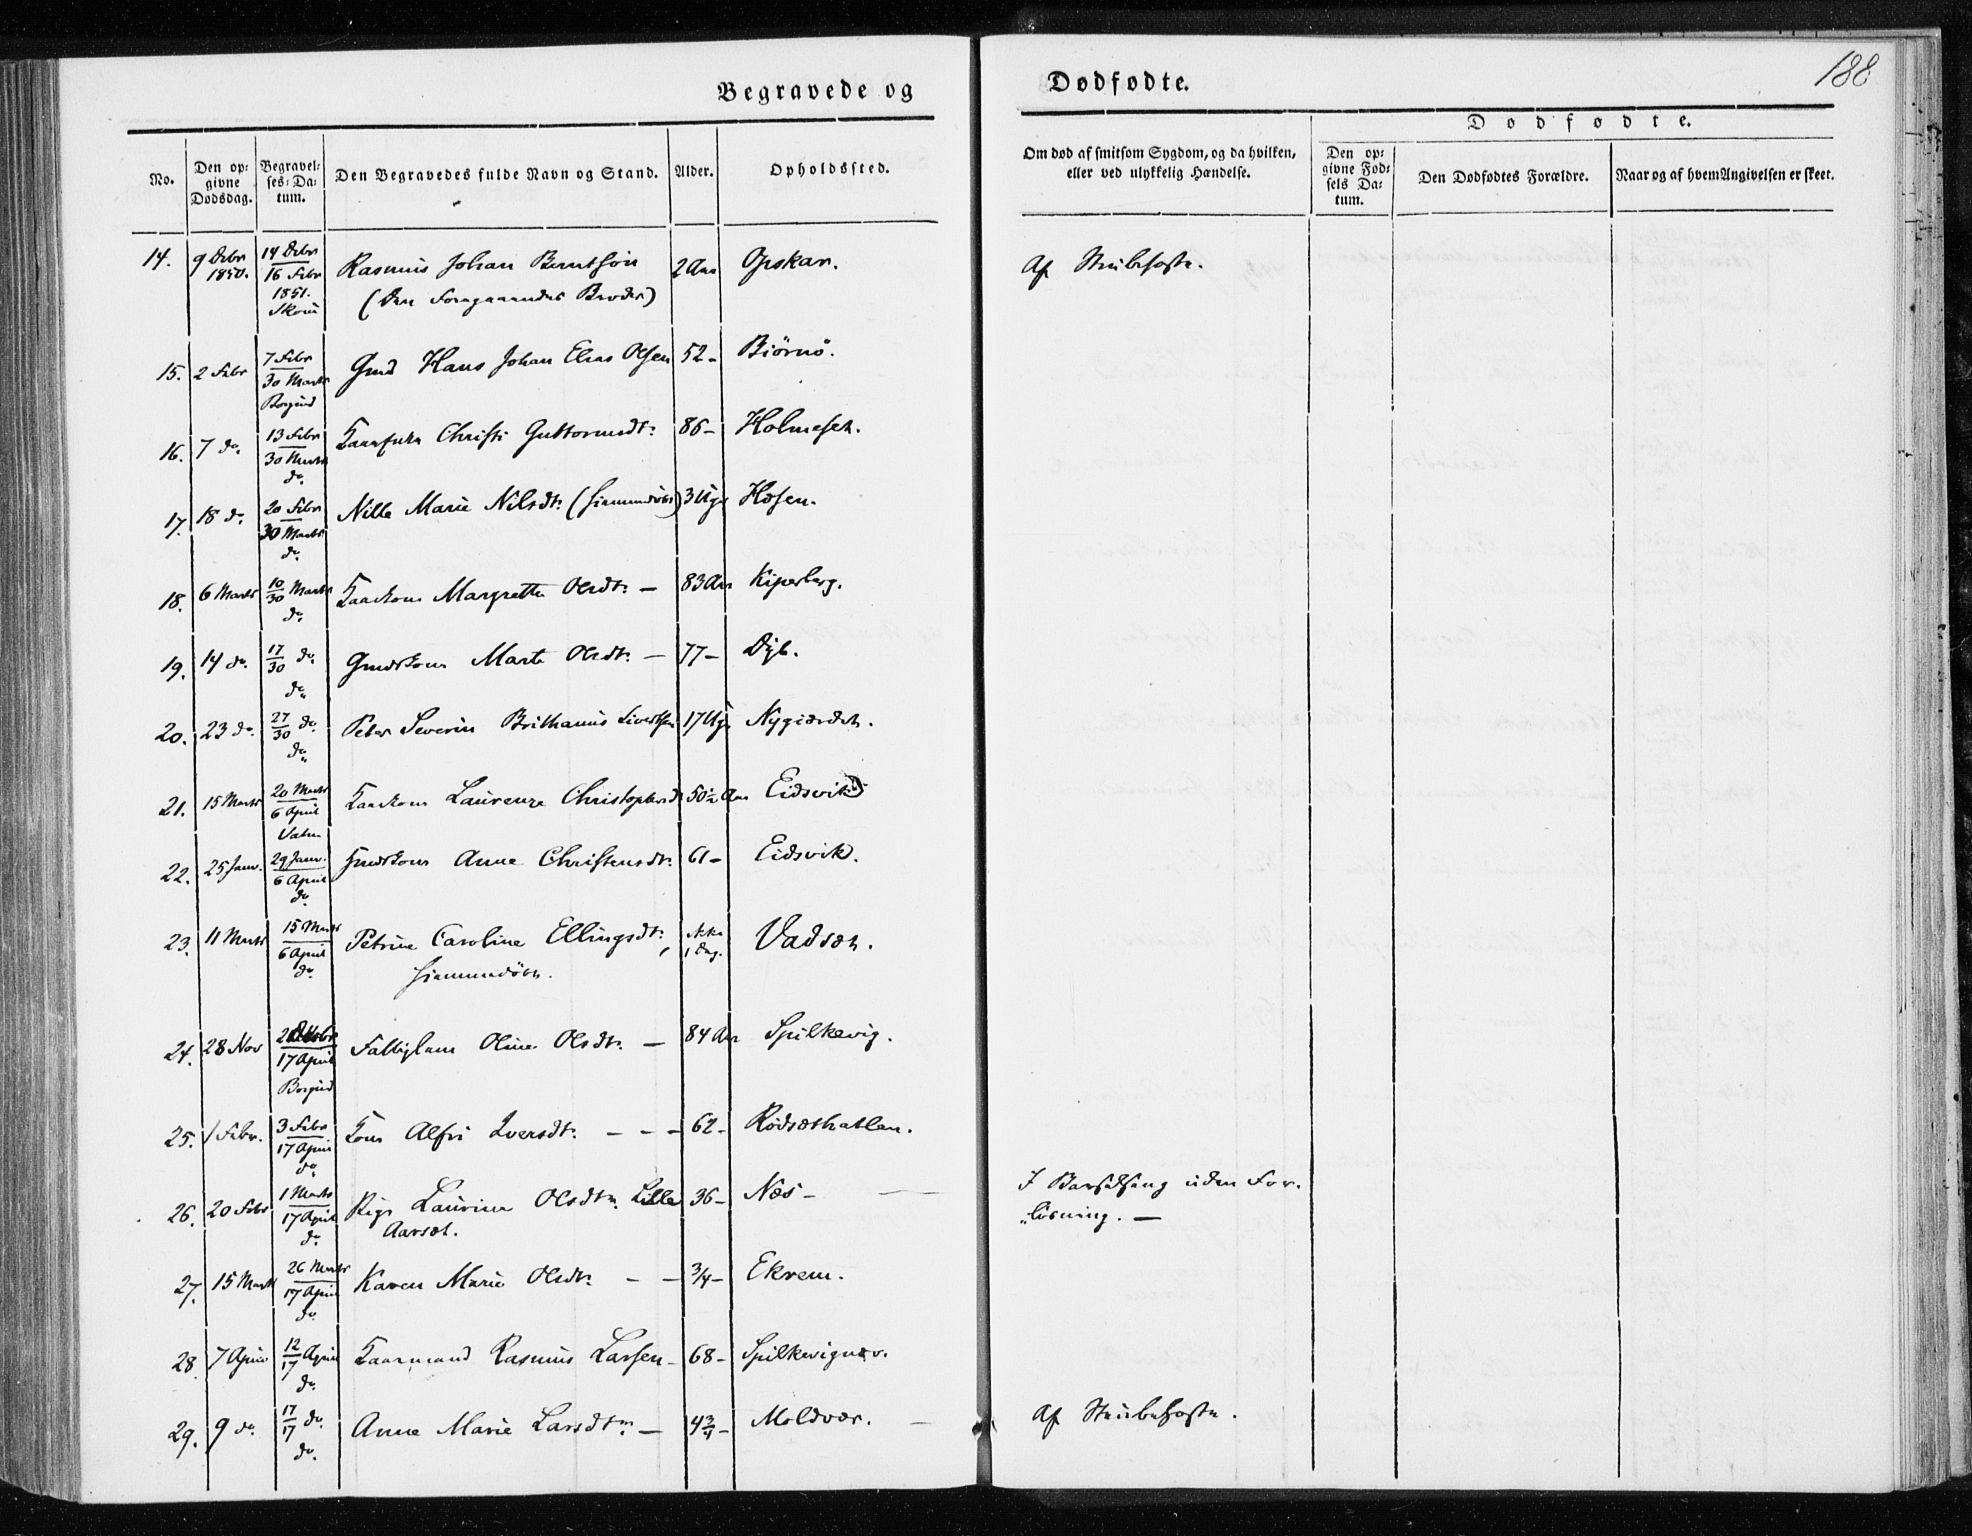 188
Begravede og Dødfødte.
No. | Den op=givne Dødsdag. | Begravel=ses=Da=tum. | Den Begravedes fulde Navn og Stand. | Alder. | Opholdssted. | Om død af smitsom Sygdom, og da hvilken, eller ved ulykkelig Hændelse. | Dødfødte. | Den op=givne Fød=sels Da=tum. | Den Dødfødtes Forældre. | Naar og af hvem Angivelsen er skeet.
14. | 9 Decbr 1850. | 14 Decbr 16 Febr 1851. | Rasmus Johan Berntsøn | 2 Aar | Opskar. | Af Strubehoste.
(Den Foregaaendes Broder)
15. | 2 Febr | 7 Febr 30 Marts Borgund | Gmd Hans Johan Elias Olsen | 52 - | Biørnø.
16. | 7 do. | 13 Febr 30 Marts do. | Christi Guttormsdtr. | 86 - | Holmeset.
17. | 18 do. | 20 Febr 30 Marts do. | Nille Marie Nilsdtr. (hiemmedøbt) | 3 Uger | Hæsen.
18. | 6 Marts | 10/30 Marts do. | Kaarkone Margrethe Olsdtr. — | 83 Aar | Kiperberg.
19. | 14 do. | 17/30 do. do. | Gmdskone Marte Olsdtr. — | 77 - | Dyb.
20. | 23 do. | 27/30 do. do. | Peter Severin Brithanus Sivertsen | 17 Uger | Nygiærdet.
21. | 15 Marts | 20 Marts 6 April Vatne | Kaarkone Laurenze Christophersd | 50½ Aar | Eidsvik
22. | 25 Janv. | 29 Janv. 6 April do. | Gmdskone Anne Christensdtr. | 61 - | Eidsvik.
23. | 11 Marts | 15 Marts 6 April do. | Petrine Caroline Ellingsdtr., | ikke 1 Dag. | Vadsæt.
hiemmedøbt.
24. | 28 Nov | 17 April Borgund | Fattiglem Oline Olsdtr. — | 84 Aar | Spilkevig.
25. | 1 Febr. | 3 Febr 17 April do. | Kone Alfri Iversdtr. - - - | 62 - | Rødsæthatlen.
26. | 20 Febr | 1 Marts 17 April do. | Pige Laurine Olsdtr. Lille | 36 - | Næs - | I Barselseng uden For-
Aarsæt. | „løsning. —
27. | 15 Marts | 26 Marts 17 April do. | Karen Marie Olsdtr. - - | 3/4 - | Ekrem.
28. | 7 April | 12/17 April do. | Kaarmand Rasmus Larsen - | 68 - | Spilkevignæv.
29. | 9 do. | 17/17 do. do. | Anne Marie Larsdtr. — | 4¾ - | Moldvær. | Af Strubehoste.